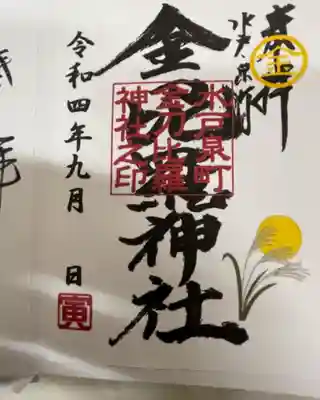 奉拝
水戸泉町
金刀比羅神社
水戸泉町
金刀比羅
神社之印
金
令和四年九月 日
寅